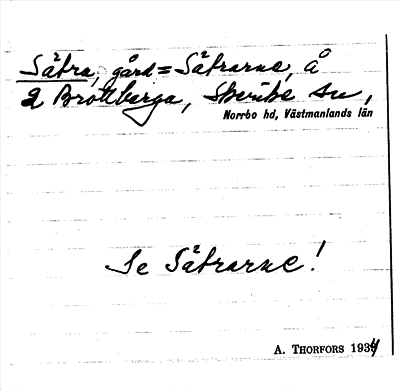 Sätra, gård = Sätrarne, å
2 Brottberga, Skerike sn,
Norrbo hd, Västmanlands län
Se Sätrarne!
A. THORFORS 1934